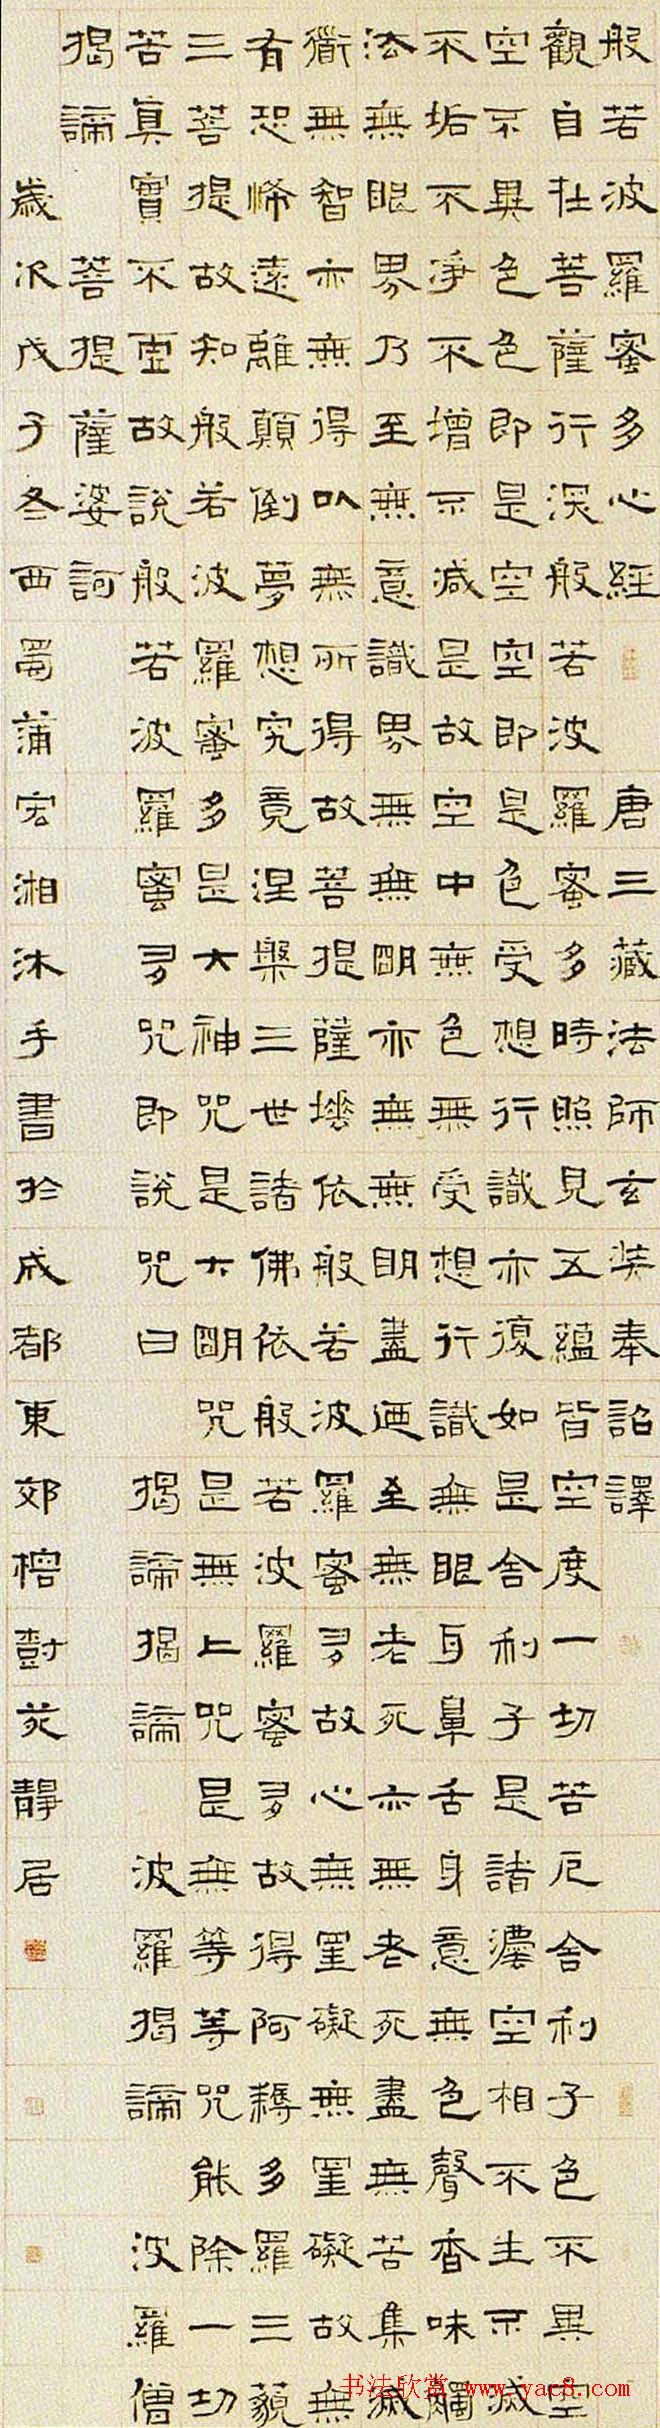 般若波羅蜜多心經 唐三藏法師玄奘奉詔譯
觀自在菩薩行深般若波羅蜜多時照見五蘊皆空度一切苦厄舍利子色不異空
空不異色色即是空空即是色受想行識亦復如是舍利子是諸法空相不生不滅
不垢不淨不增不減是故空中無色無受想行識無眼耳鼻舌身意無色聲香味觸
法無眼界乃至無意識界無無明亦無無明盡迺至無老死亦無老死盡無苦集滅
衟無智亦無得以無所得故菩提薩埵依般若波羅蜜多故心無罣礙無罣礙故無
有恐怖遠離顛倒夢想究竟涅槃三世諸佛依般若波羅蜜多故得阿耨多羅三藐
三菩提故知般若波羅蜜多是大神咒是大明咒是無上咒是無等等咒能除一切
苦真實不虛故說般若波羅蜜多咒即說咒曰 揭諦揭諦 波羅揭諦 波羅僧
揭諦 菩提薩婆訶
歲次戊子冬西蜀蒲宏湘沐手書於成都東郊榕樹苑靜居
书法欣赏 www.yac8.com